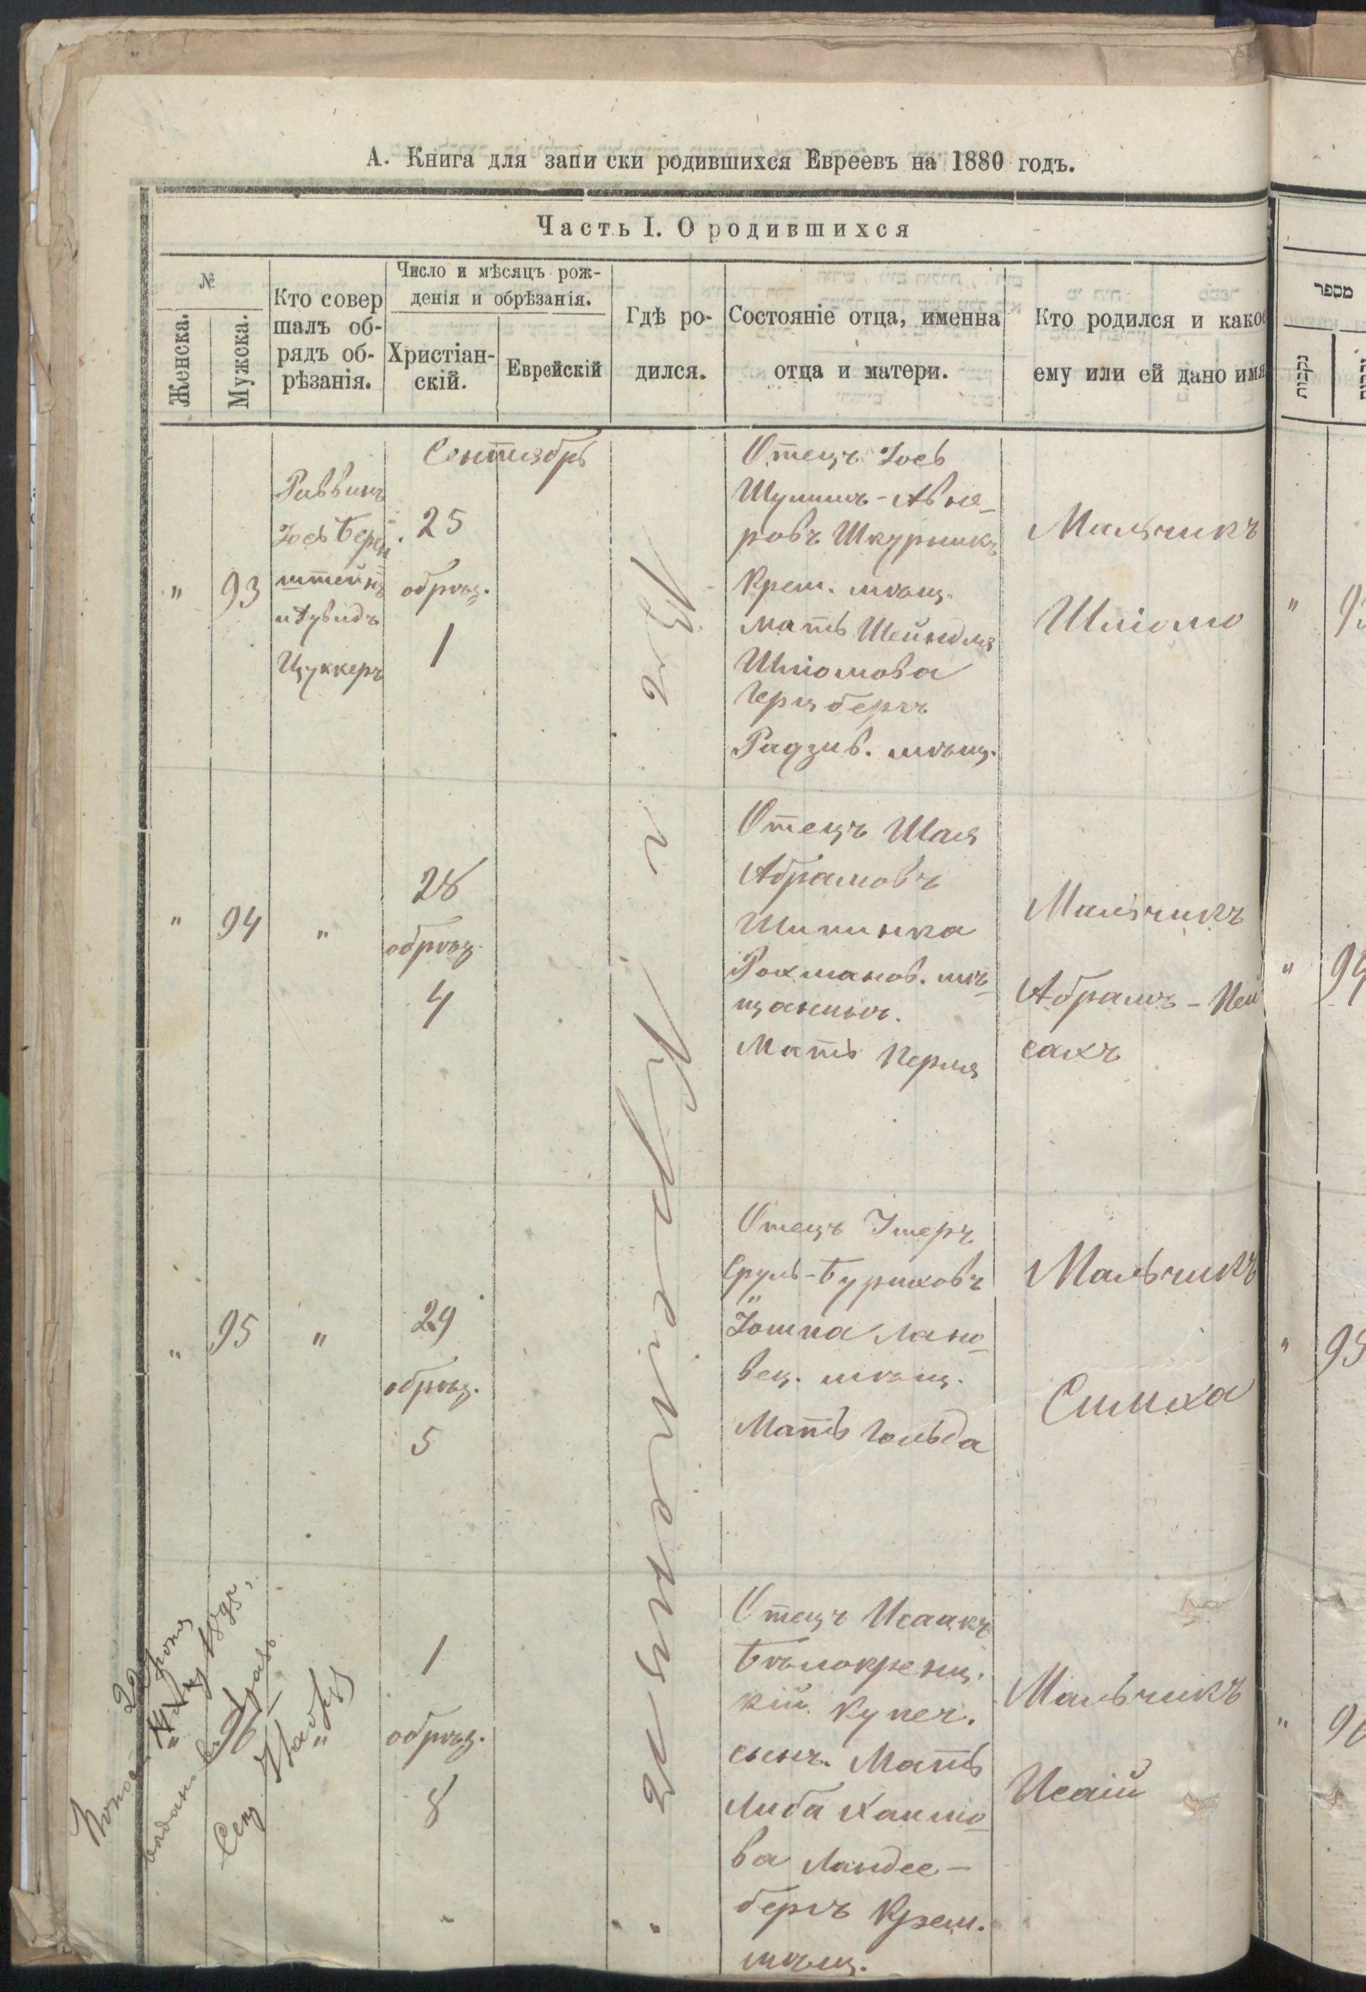 А. Книга для записки родившихся Евреевъ на 1880 годъ.
Часть I. О родившихся
№
Женска.
Мужска.
Кто совер
шалъ об-
рядъ об-
рѣзанія.
Число и мѣсяцъ рож-
денія и обрѣзанія.
Христіан-
скій.
Еврейскій
Гдѣ ро-
дился.
Состояніе отца, именна
отца и матери.
Кто родился и како
ему или ей дано имя
מספר
נקבות
Сентябрь
"
93
Раввинъ
Іось Берен-
штейнъ
и Дувидъ
Цуккеръ
25
обрѣз.
1
Въ г. Кременцѣ
Отецъ Іось
Шулимъ-Авне-
ровъ Шкурникъ
Крем. мѣщ.
Мать Шейндля
Шліомова
Герцбергъ
Радзив. мѣщ.
Мальчикъ
Шліомо
"
94
"
28
обрѣз.
4
Отецъ Шая
Абрамовъ
Шпинка
Рохманов. мѣ-
щанинъ.
Мать Перля
Мальчикъ
Абрамъ-Пей
сахъ
"
95
"
29
обрѣз.
5
Отецъ Итеръ
Сруль-Буриховъ
Іошпа Лано-
вец. мѣщ.
Мать Гольда
Мальчикъ
Симха
"
96
"
1
обрѣз.
8
Отецъ Исаакъ
Бѣлокрениц.
кій Купеч.
сынъ. Мать
Либа Хаимо-
ва Ландес-
бергъ Крем.
мѣщ.
Мальчикъ
Исаій
"
94
"
95
"